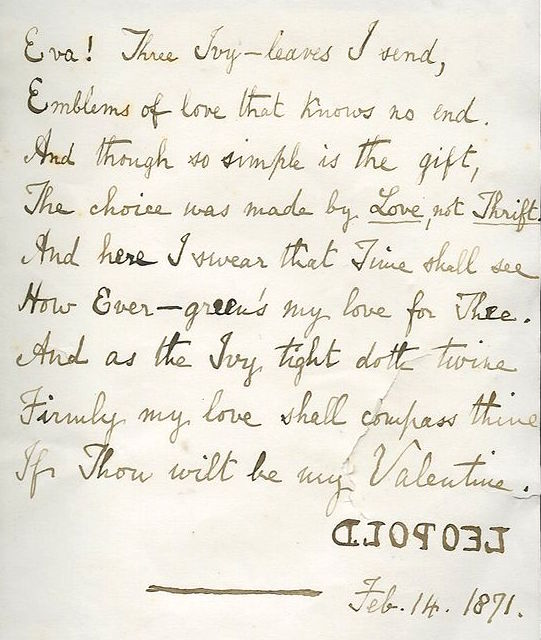 Eva! Three Ivy-leaves I send,
Emblems of love that knows no end.
And though so simple is the gift,
The choice was made by Love, not Thrift.
And here I swear that Time shall see
How Ever-green's my love for Thee.
And as the Ivy tight doth twine
Firmly my love shall compass thine
If Thou wilt be my Valentine.
LEOPOLD
Feb. 14. 1871.